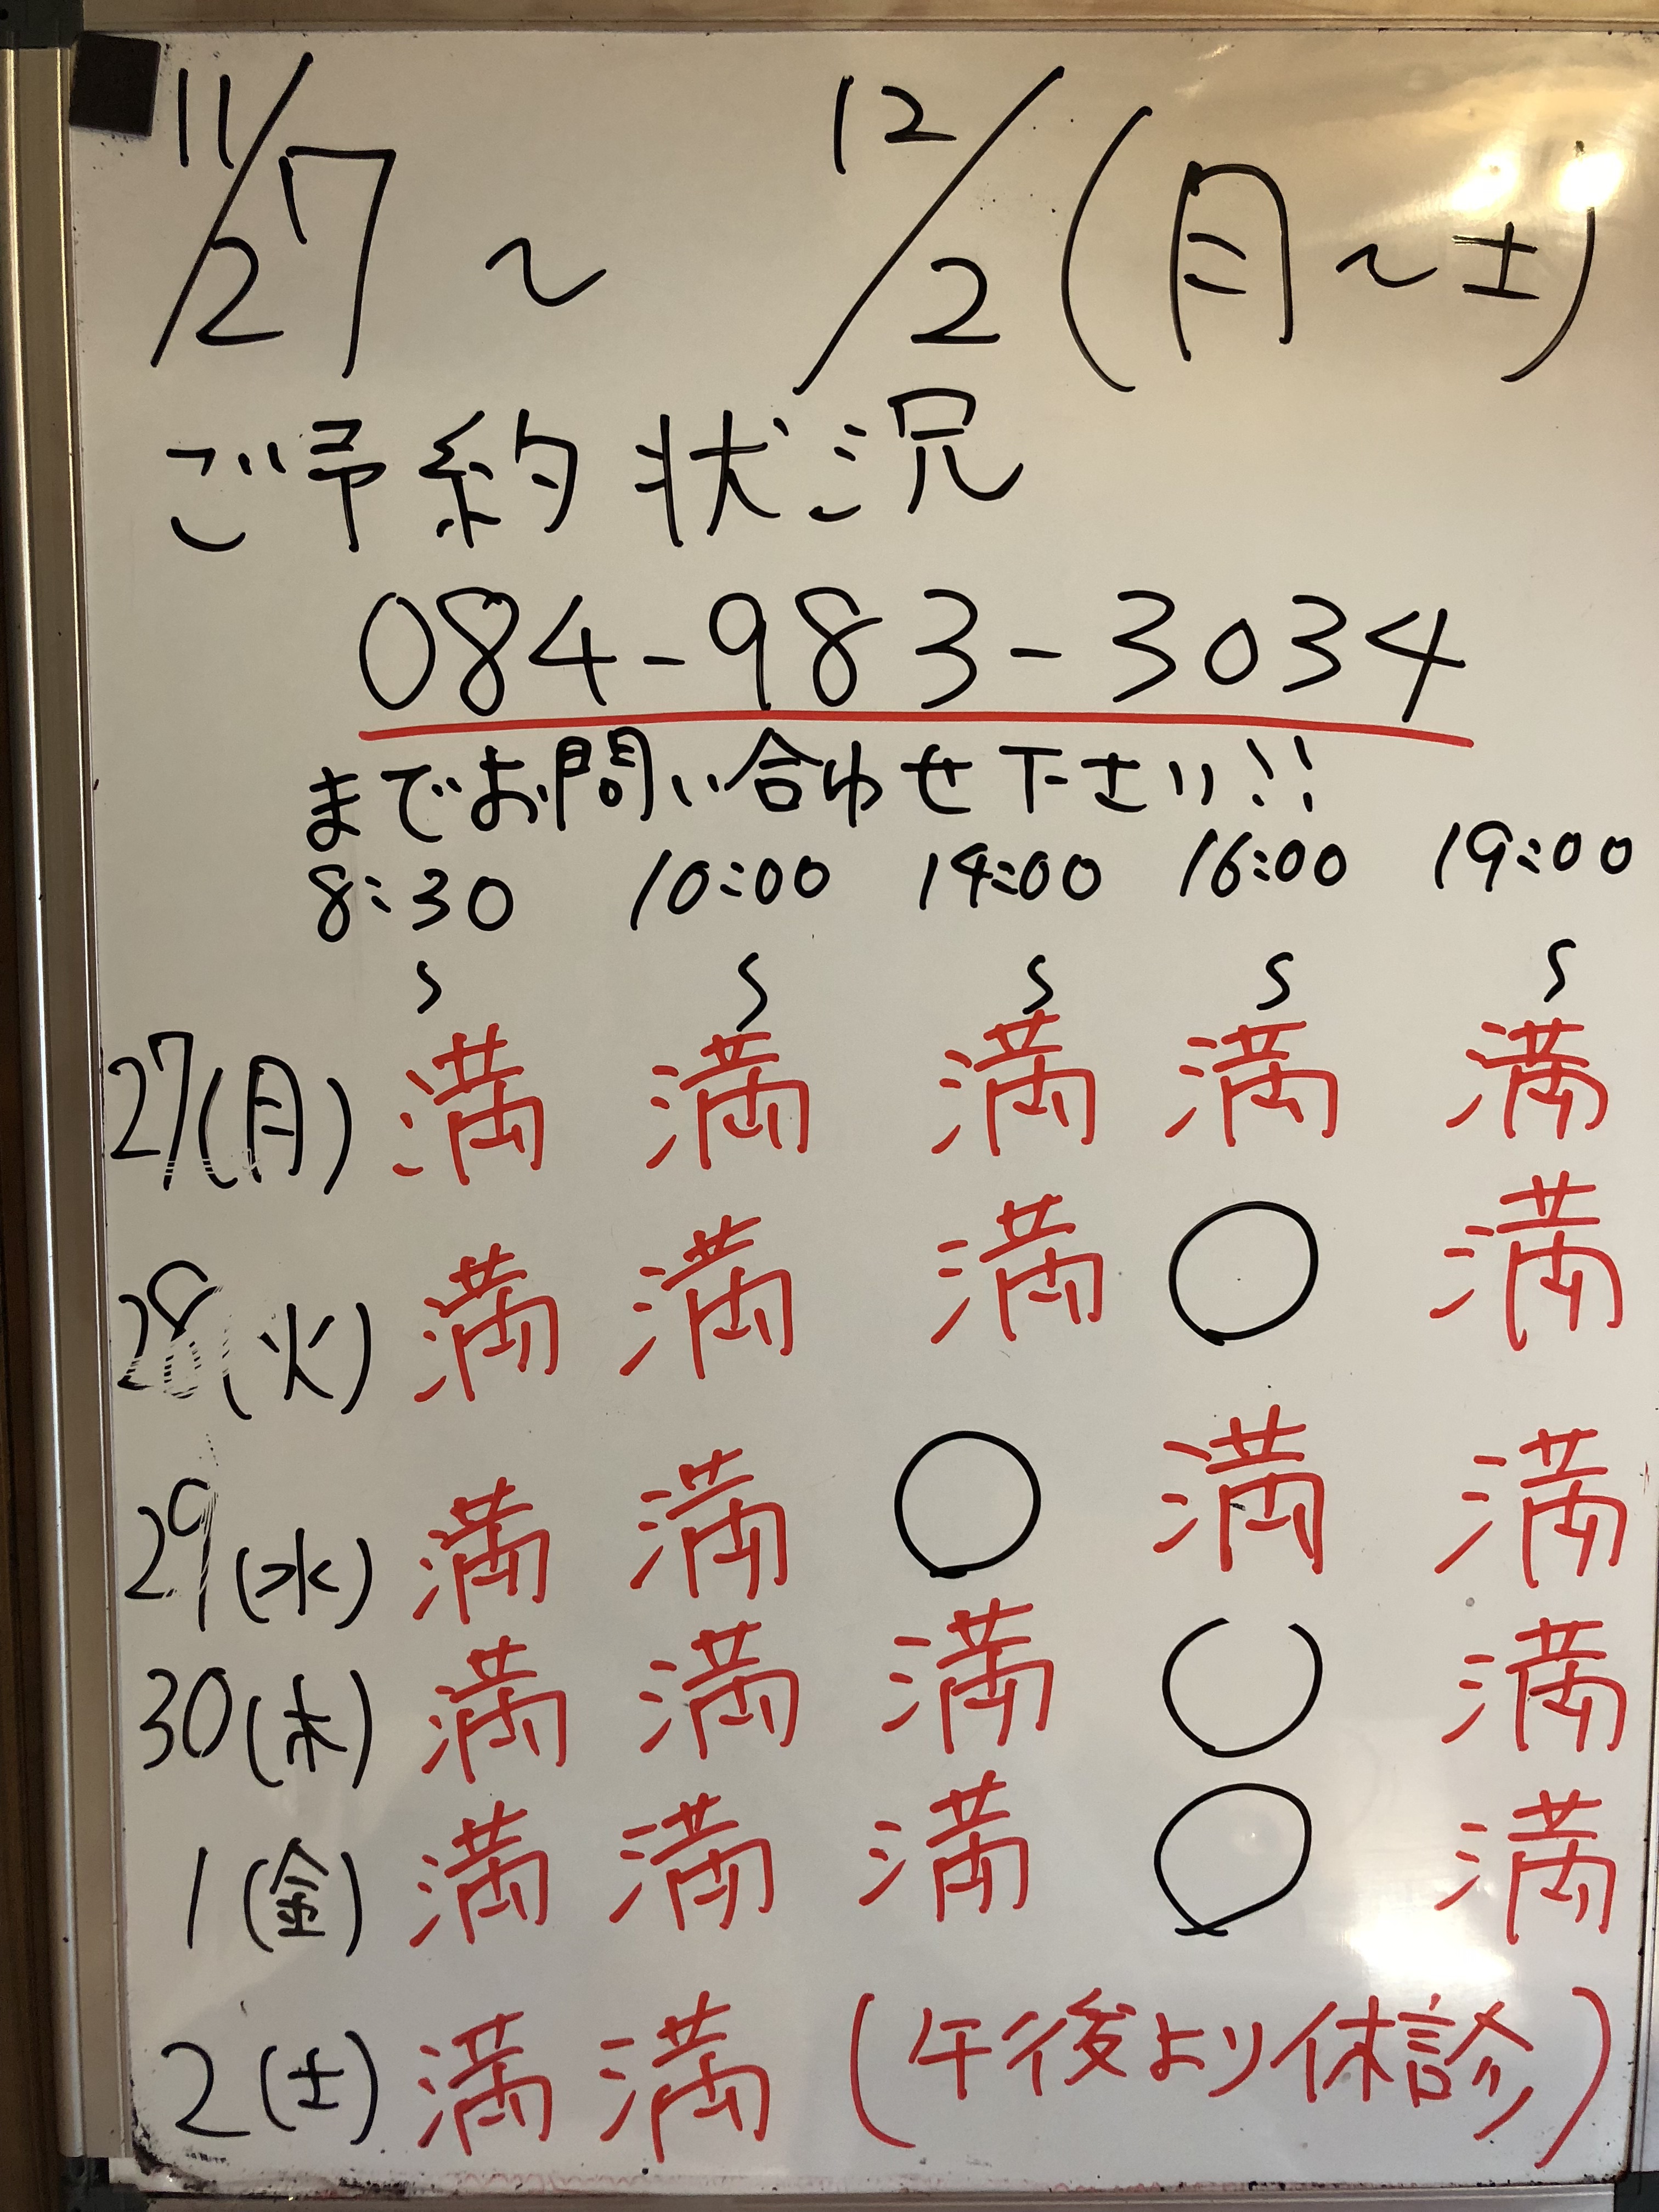 11/27 〜 12/2 (月〜土)
ご予約状況
084-983-3034
までお問い合わせ下さい!!
8:30 10:00 14:00 16:00 19:00
〜 〜 〜 〜 〜
27(月) 満 満 満 満 満
28(火) 満 満 満 ○ 満
29(水) 満 満 ○ 満 満
30(木) 満 満 満 ○ 満
1(金) 満 満 満 ○ 満
2(土) 満 満 (午後より休診)